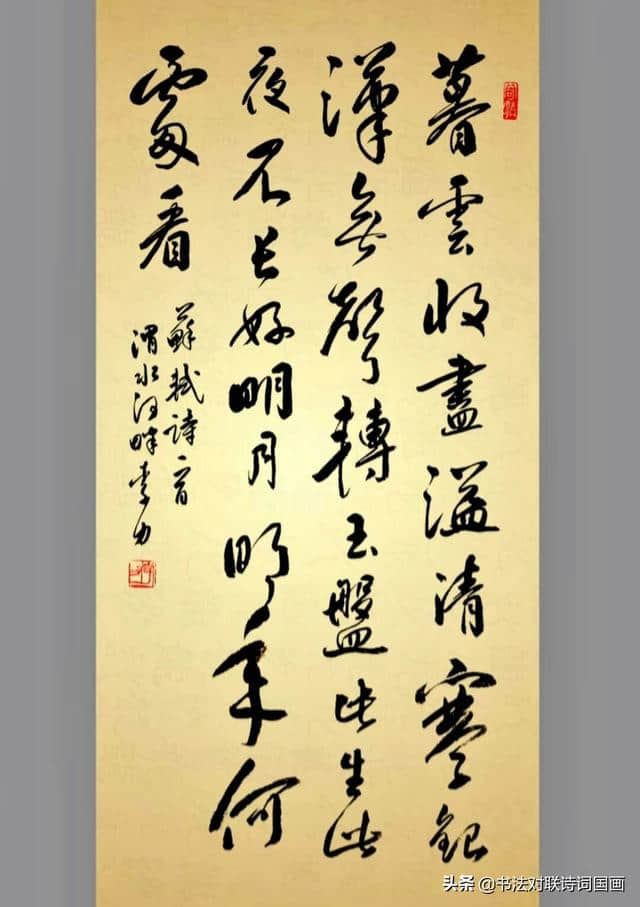 暮雲收盡溢清寒銀
漢無聲轉玉盤此生此
夜不長好明月明年何
處看
蘇軾詩一首
渭水河畔李力
头条 @书法对联诗词国画